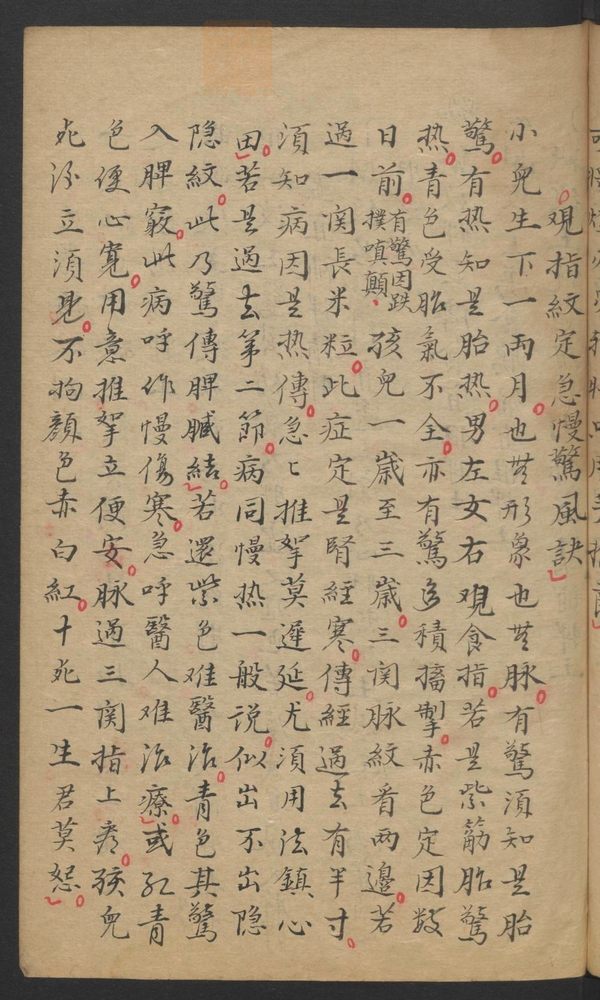 觀指紋定急慢驚風訣
小兒生下一兩月。也无形象也无脉。有驚須知是胎
驚。有热知是胎热。男左女右观食指。若是紫筋胎驚
热。青色受胎氣不全。亦有驚積搐掣。赤色定因数
日前。有驚因跌撲嗔顛、孩兒一歳至三歳。三関脉紋看两邊。若
過一関長米粒。此症定是腎經寒。傳經過去有半寸。
須知病因是热傳。急々推拏莫遲延。尤須用法鎮心
田。若是過去第二節。病同慢热一般說。似出不出隐
隐紋。此乃驚傳脾臟結。若還紫色难醫治。青色其驚
入脾竅。此病呼作慢傷寒。急呼醫人难治療。或紅青
色便心寬。用意推拏立便安。脉過三関指上看。孩兒
死後立須見。不拘顏色赤白紅。十死一生君莫怒。